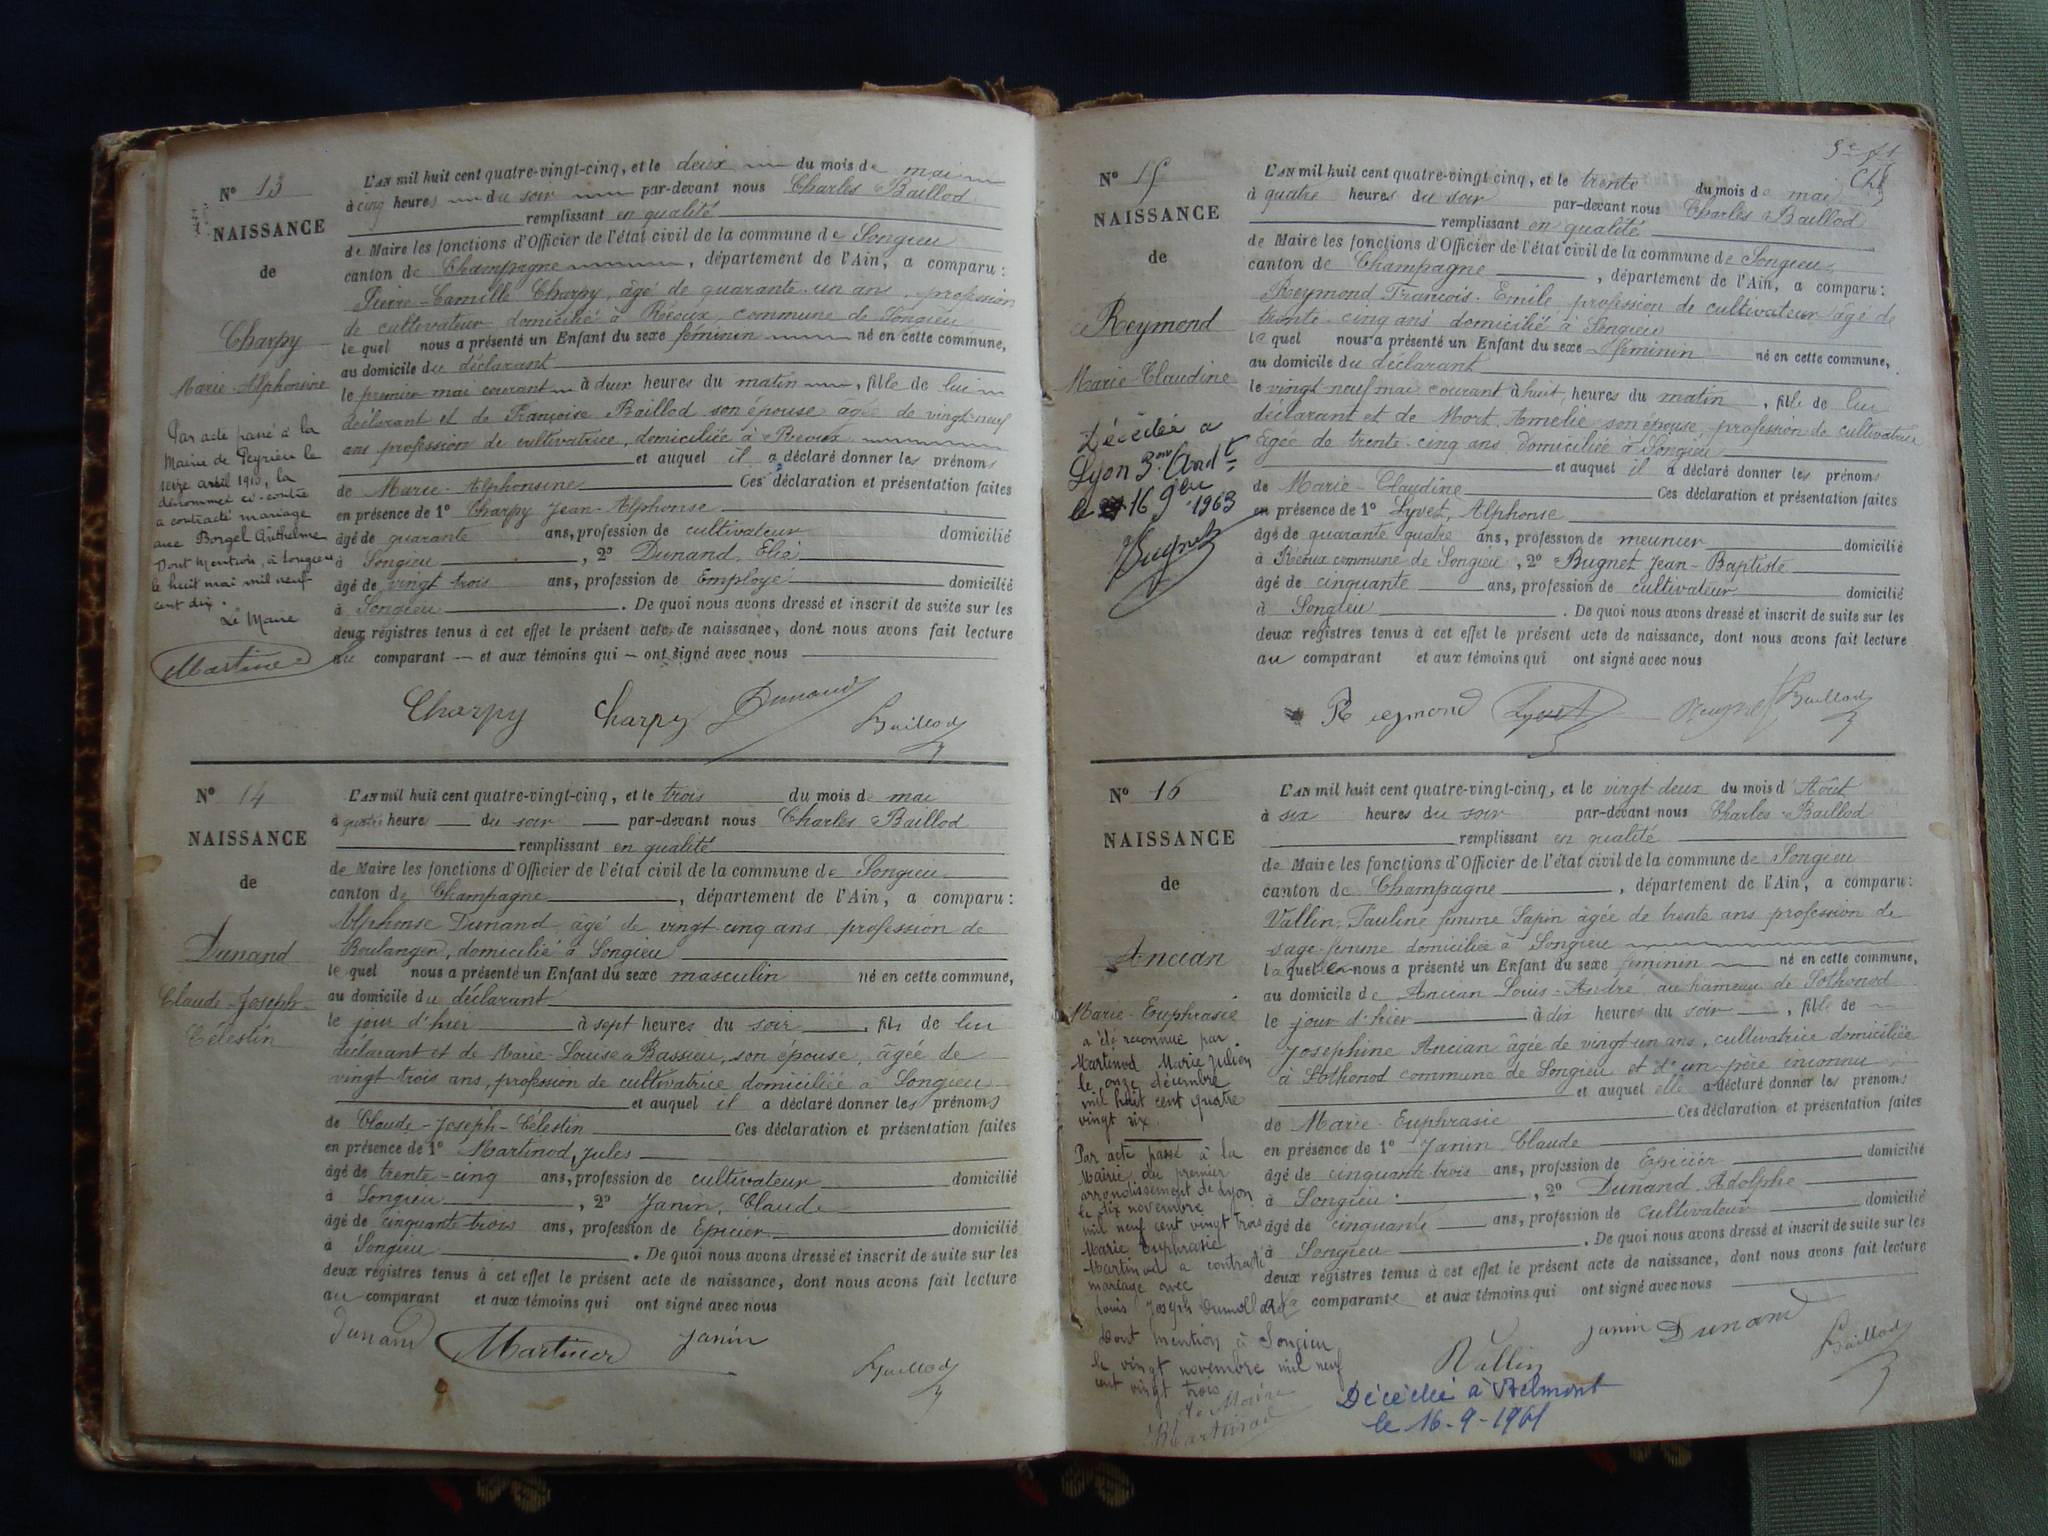 N° 13
NAISSANCE
de
Charpy
Marie-Alphonsine
Par acte passé à la
Mairie de Peyrieu le
seize avril 1910, la
dénommée ci-contre
a contracté mariage
avec Borgel Anthelme
Dont Mention, à Songieu
le huit mai mil neuf
cent dix.
Le Maire
L'AN mil huit cent quatre-vingt-cinq, et le deux du mois de mai
à cinq heures du soir par-devant nous Charles Baillod
remplissant en qualité
de Maire les fonctions d'Officier de l'état civil de la commune de Songieu
canton de Champagne, département de l'Ain, a comparu :
Pierre-Camille Charpy, âgé de quarante-un ans, profession
de cultivateur domicilié à Réoux, commune de Songieu
lequel nous a présenté un Enfant du sexe féminin né en cette commune,
au domicile du déclarant
le premier mai courant à deux heures du matin, fille de lui
déclarant et de Françoise Baillod son épouse âgée de vingt-neuf
ans profession de cultivatrice, domiciliée à Réoux
et auquel il a déclaré donner les prénoms
de Marie-Alphonsine Ces déclaration et présentation faites
en présence de 1° Charpy Jean-Alphonse
âgé de quarante ans, profession de cultivateur domicilié
à Songieu, 2° Dunand, Elie
âgé de vingt trois ans, profession de Employé domicilié
à Songieu. De quoi nous avons dressé et inscrit de suite sur les
deux registres tenus à cet effet le présent acte de naissance, dont nous avons fait lecture
au comparant — et aux témoins qui — ont signé avec nous
Charpy Charpy Dunand Baillod
N° 14
NAISSANCE
de
Dunand
Claude-Joseph-
Célestin
L'AN mil huit cent quatre-vingt-cinq, et le trois du mois de mai
à quatre heure du soir par-devant nous Charles Baillod
remplissant en qualité
de Maire les fonctions d'Officier de l'état civil de la commune de Songieu
canton de Champagne, département de l'Ain, a comparu :
Alphonse Dunand âgé de vingt-cinq ans profession de
Boulanger, domicilié à Songieu
lequel nous a présenté un Enfant du sexe masculin né en cette commune,
au domicile du déclarant
le jour d'hier à sept heures du soir, fils de lui
déclarant et de Marie-Louise Bassieu, son épouse, âgée de
vingt trois ans, profession de cultivatrice domiciliée à Songieu
et auquel il a déclaré donner les prénoms
de Claude-Joseph-Célestin Ces déclaration et présentation faites
en présence de 1° Martinod, Jules
âgé de trente-cinq ans, profession de cultivateur domicilié
à Songieu, 2° Janin, Claude
âgé de cinquante-trois ans, profession de Epicier domicilié
à Songieu. De quoi nous avons dressé et inscrit de suite sur les
deux registres tenus à cet effet le présent acte de naissance, dont nous avons fait lecture
au comparant et aux témoins qui ont signé avec nous
Dunand Janin Baillod
N° 15
NAISSANCE
de
Reymond
Marie-Claudine
Décédée à
Lyon 3me Ardt
le 16 9bre 1963
L'AN mil huit cent quatre-vingt-cinq, et le trente du mois de mai
à quatre heures du soir par-devant nous Charles Baillod
remplissant en qualité
de Maire les fonctions d'Officier de l'état civil de la commune de Songieu
canton de Champagne, département de l'Ain, a comparu :
Reymond François-Emile profession de cultivateur âgé de
trente-cinq ans domicilié à Songieu
lequel nous a présenté un Enfant du sexe féminin né en cette commune,
au domicile du déclarant
le vingt-neuf mai courant à huit heures du matin, fille de lui
déclarant et de Mort Amélie son épouse, profession de cultivatrice
âgée de trente-cinq ans, domiciliée à Songieu
et auquel il a déclaré donner les prénoms
de Marie-Claudine Ces déclaration et présentation faites
en présence de 1° Lyvet, Alphonse
âgé de quarante quatre ans, profession de meunier domicilié
à Réoux commune de Songieu, 2° Bugnet Jean-Baptiste
âgé de cinquante ans, profession de cultivateur domicilié
à Songieu. De quoi nous avons dressé et inscrit de suite sur les
deux registres tenus à cet effet le présent acte de naissance, dont nous avons fait lecture
au comparant et aux témoins qui ont signé avec nous
Reymond Lyvet Baillod
N° 16
NAISSANCE
de
Ancian
Marie-Euphrasie
a été reconnue par
Martinod Marie Julien
le onze décembre
mil huit cent quatre
vingt six.
Par acte passé à la
Mairie du premier
arrondissement de Lyon
le dix novembre
mil neuf cent vingt trois
Marie Euphrasie
Martinod a contracté
mariage avec
Louis Joseph Dumollard
Dont mention à Songieu
le vingt novembre mil neuf
cent vingt trois
Le Maire
Martinod
L'AN mil huit cent quatre-vingt-cinq, et le vingt-deux du mois d'Août
à six heures du soir par-devant nous Charles Baillod
remplissant en qualité
de Maire les fonctions d'Officier de l'état civil de la commune de Songieu
canton de Champagne, département de l'Ain, a comparu :
Vallin, Pauline femme Sapin âgée de trente ans profession de
sage-femme domiciliée à Songieu
laquelle nous a présenté un Enfant du sexe féminin né en cette commune,
au domicile de Ancian Louis-André au hameau de Sothonod
le jour d'hier à dix heures du soir, fille de
Josephine Ancian âgée de vingt-un ans, cultivatrice domiciliée
à Sothonod commune de Songieu et d'un père inconnu
et auquel elle a déclaré donner les prénoms
de Marie-Euphrasie Ces déclaration et présentation faites
en présence de 1° Janin, Claude
âgé de cinquante-trois ans, profession de Epicier domicilié
à Songieu, 2° Dunand, Adolphe
âgé de cinquante ans, profession de cultivateur domicilié
à Songieu. De quoi nous avons dressé et inscrit de suite sur les
deux registres tenus à cet effet le présent acte de naissance, dont nous avons fait lecture
à la comparante et aux témoins qui ont signé avec nous
Vallin Janin Dunand Baillod
Décédée à Belmont
le 16-9-1961